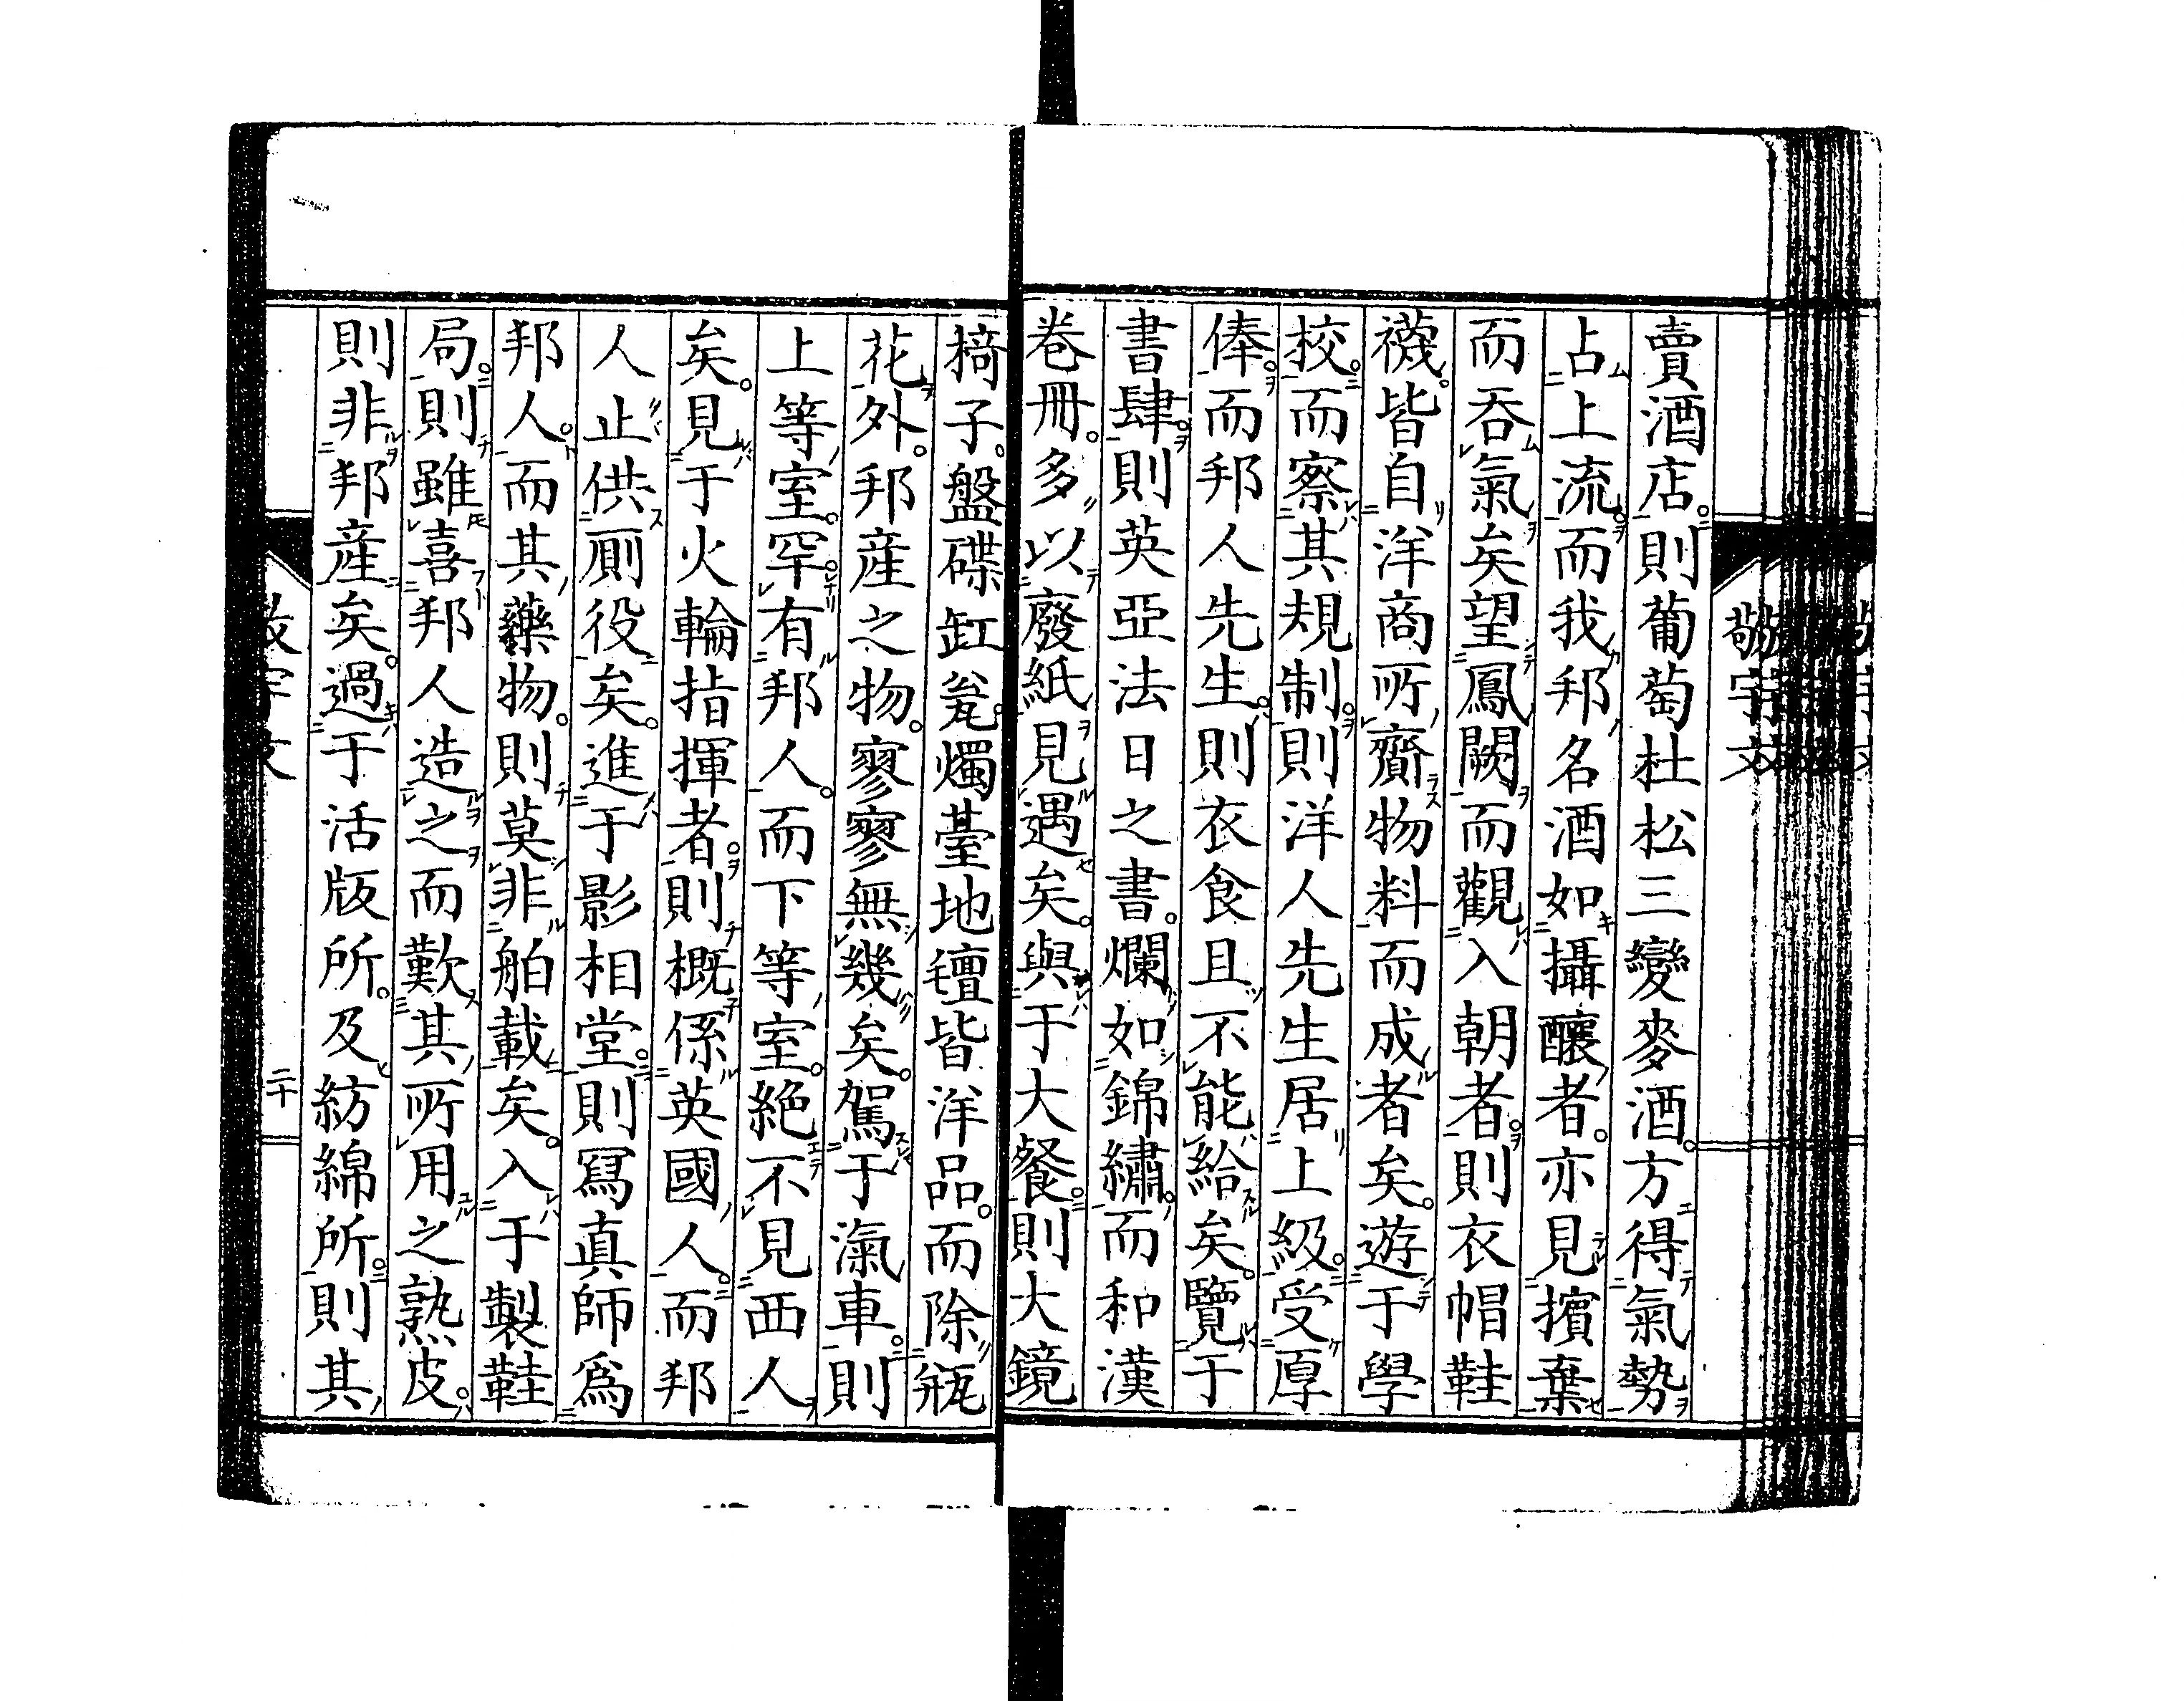 賣酒店。則葡萄杜松三變麥酒。方得氣勢
占上流。而我邦名酒如攝釀者。亦見擯棄
而吞氣矣望鳳闕而觀入朝者。則衣帽鞋
襪。皆自洋商所齎物料而成者矣。遊于學
校。而察其規制。則洋人先生居上級。受厚
俸。而邦人先生。則衣食且不能給矣。覽于
書肆。則英亞法日之書。爛如錦繡。而和漢
卷冊。多以廢紙見遇矣。與于大餐。則大鏡
椅子。盤碟缸瓮。燭臺地氊皆洋品。而除瓶
花外。邦産之物。寥寥無幾矣。駕于瀛車。則
上等室。罕有邦人。而下等室。絕不見西人
矣。見于火輪指揮者。則概係英國人。而邦
人止供厠役矣。進于影相堂。則寫真師爲
邦人。而其藥物。則莫非舶載矣。入于製鞋
局。則雖喜邦人造之而歎其所用之熟皮。
則非邦産矣。過于活版所。及紡綿所。則其
敬宇文
二十